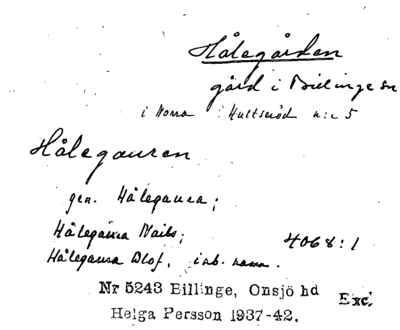 Hålegården
gård i Billinge sn
i Norra Hultseröd n:r 5
Hålegauren
gen. Hålegaura;
Hålegaura Nails; 4068:1
Hålegaura Olof, inb. namn.
Nr 5243 Billinge, Onsjö hd Exc.
Helga Persson 1937-42.